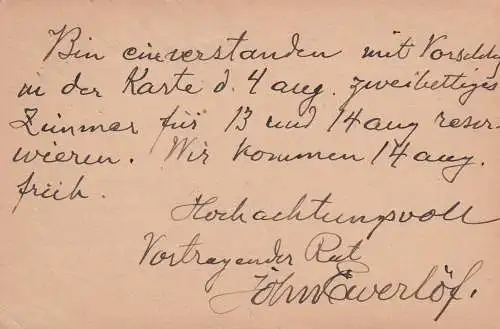 Bin einverstanden mit Vorschlag
in der Karte d. 4 aug. zweibettiges
Zimmer für 13 und 14 aug reser-
wieren. Wir kommen 14 aug.
früh.
Hochachtungsvoll
Vortragender Rat
John Ewerlöf.